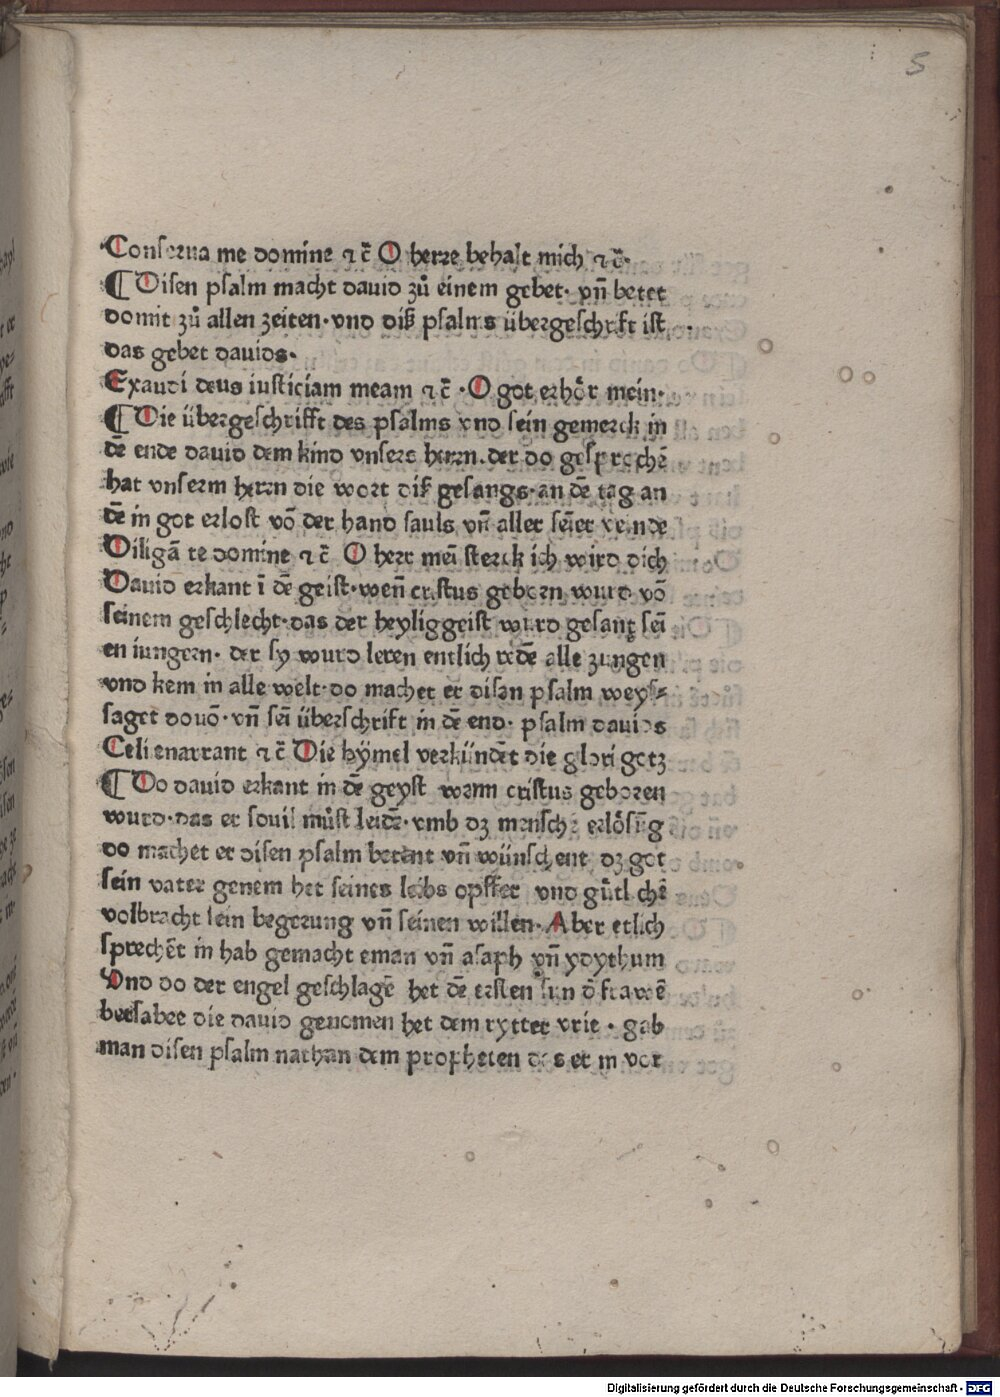 5
Conserua me domine ⁊ c̄ O herre behalt mich ⁊ c̄·
¶ Disen psalm macht dauid zů einem gebet· vn̄ betet
domit zů allen zeiten·vnd diß psalms übergeschrift ist
das gebet dauids·
Exaudi deus iusticiam meam ⁊ c̄ ·O got erhör mein·
¶ Die übergeschrifft des psalms vnd sein gemerck in
dē ende dauid dem kind vnsers herrn.der do gesprochē
hat vnserm herrn die wort diß gesangs·an dē tag an
dē in got erlost vō der hand sauls vn̄ aller sēier veinde
Diligā te domine ⁊ c̄ O herr meī sterck ich wird dich
Dauid erkant ī dē geist·wen̄ cristus geborn wurd vō
seinem geschlecht·das der heylig geist wurd gesant seī
en iungern· der sy wurd leren entlich redē alle zungen
vnd kem in alle welt·do machet er disen psalm weys⸗
saget douō·vn̄ seī überschrift in dē end· psalm dauids
Celi enarrant ⁊ c̄ Die hÿmel verkündēt die glori gotz
¶ Do dauid erkant in dē geyst wann cristus geboren
wurd·das er souil můst leidē·vmb dz menschē erlösūg
do machet er disen psalm betent vn̄ wünschent dz got
sein vater genem het seines leibs opffer vnd gůtlichē
volbracht sein begerung vn̄ seinen willen· Aber etlich
sprechēt in hab gemacht eman vn̄ asaph vn̄ ydythum
Vnd do der engel geschlagē het dē ersten sun d̄ frawē
bersabee die dauid genomen het dem rytter vrie · gab
man disen psalm nathan dem propheten das er in vor
Digitalisierung gefördert durch die Deutsche Forschungsgemeinschaft - DFG